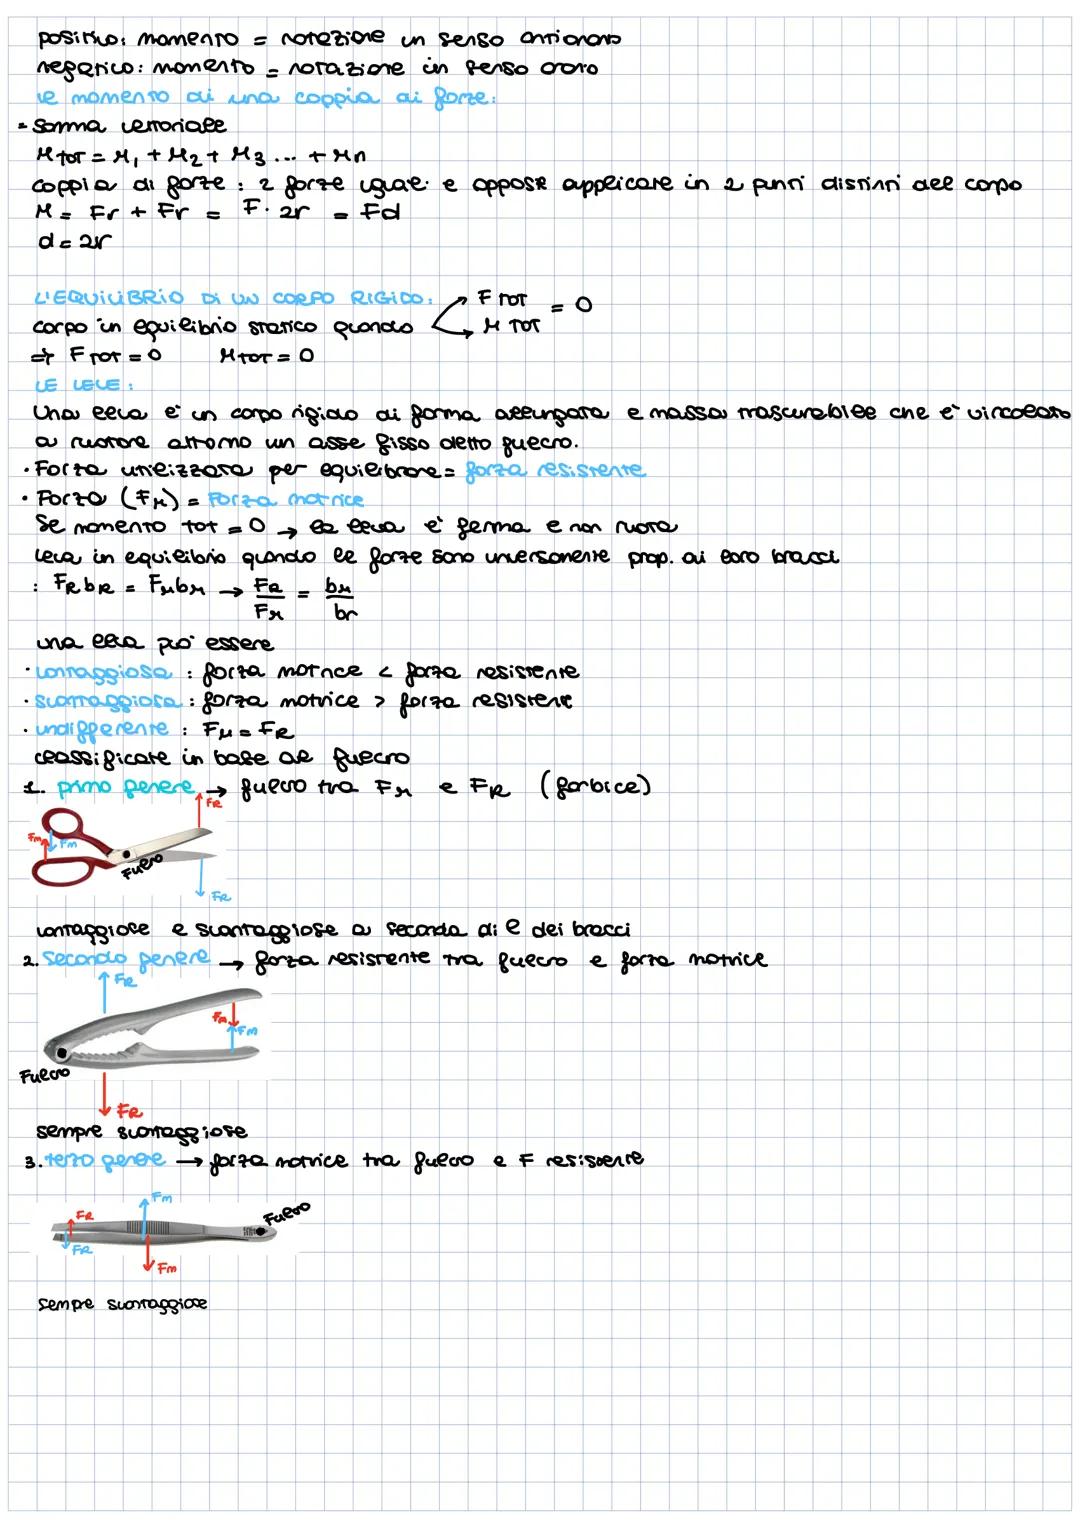 positivo: momento = rotazione in senso antiorario
negativo: momento = rotazione in senso orario
il momento di una coppia di forze:
- somma vettoriale
M TOT = M₁ + M₂ + M₃ ... + Mn
coppia di forze : 2 forze uguali e opposte applicate in 2 punti distinti del corpo
M = Fr + Fr = F · 2r = Fd
d = 2r
L'EQUILIBRIO DI UN CORPO RIGIDO:
corpo in equilibrio statico quando
F TOT
M TOT
= 0
⇒ F TOT = 0 M TOT = 0
LE LEVE :
Una leva è un corpo rigido di forma allungata e massa trascurabile che è vincolato
a ruotare attorno un asse fisso detto fulcro.
· Forza utilizzata per equilibrare = forza resistente
· Forza (FM) = Forza motrice
Se momento tot = 0 → la leva è ferma e non ruota
leva in equilibrio quando le forze sono inversamente prop. ai loro bracci
: FR bR = FM bM → FR / FM = bM / br
una leva può essere
· vantaggiosa : forza motrice < forza resistente
· svantaggiosa : forza motrice > forza resistente
· indifferente : FM = FR
classificate in base al fulcro
1. primo genere → fulcro tra FM e FR (forbice)
FR
Fm
Fm
Fulcro
FR
vantaggiose e svantaggiose a seconda di l dei bracci
2. Secondo genere → forza resistente tra fulcro e forza motrice
FR
Fm
Fm
Fulcro
FR
sempre svantaggiose
3. terzo genere → forza motrice tra fulcro e F resistente
Fm
FR
Fulcro
FR
Fm
sempre svantaggiose